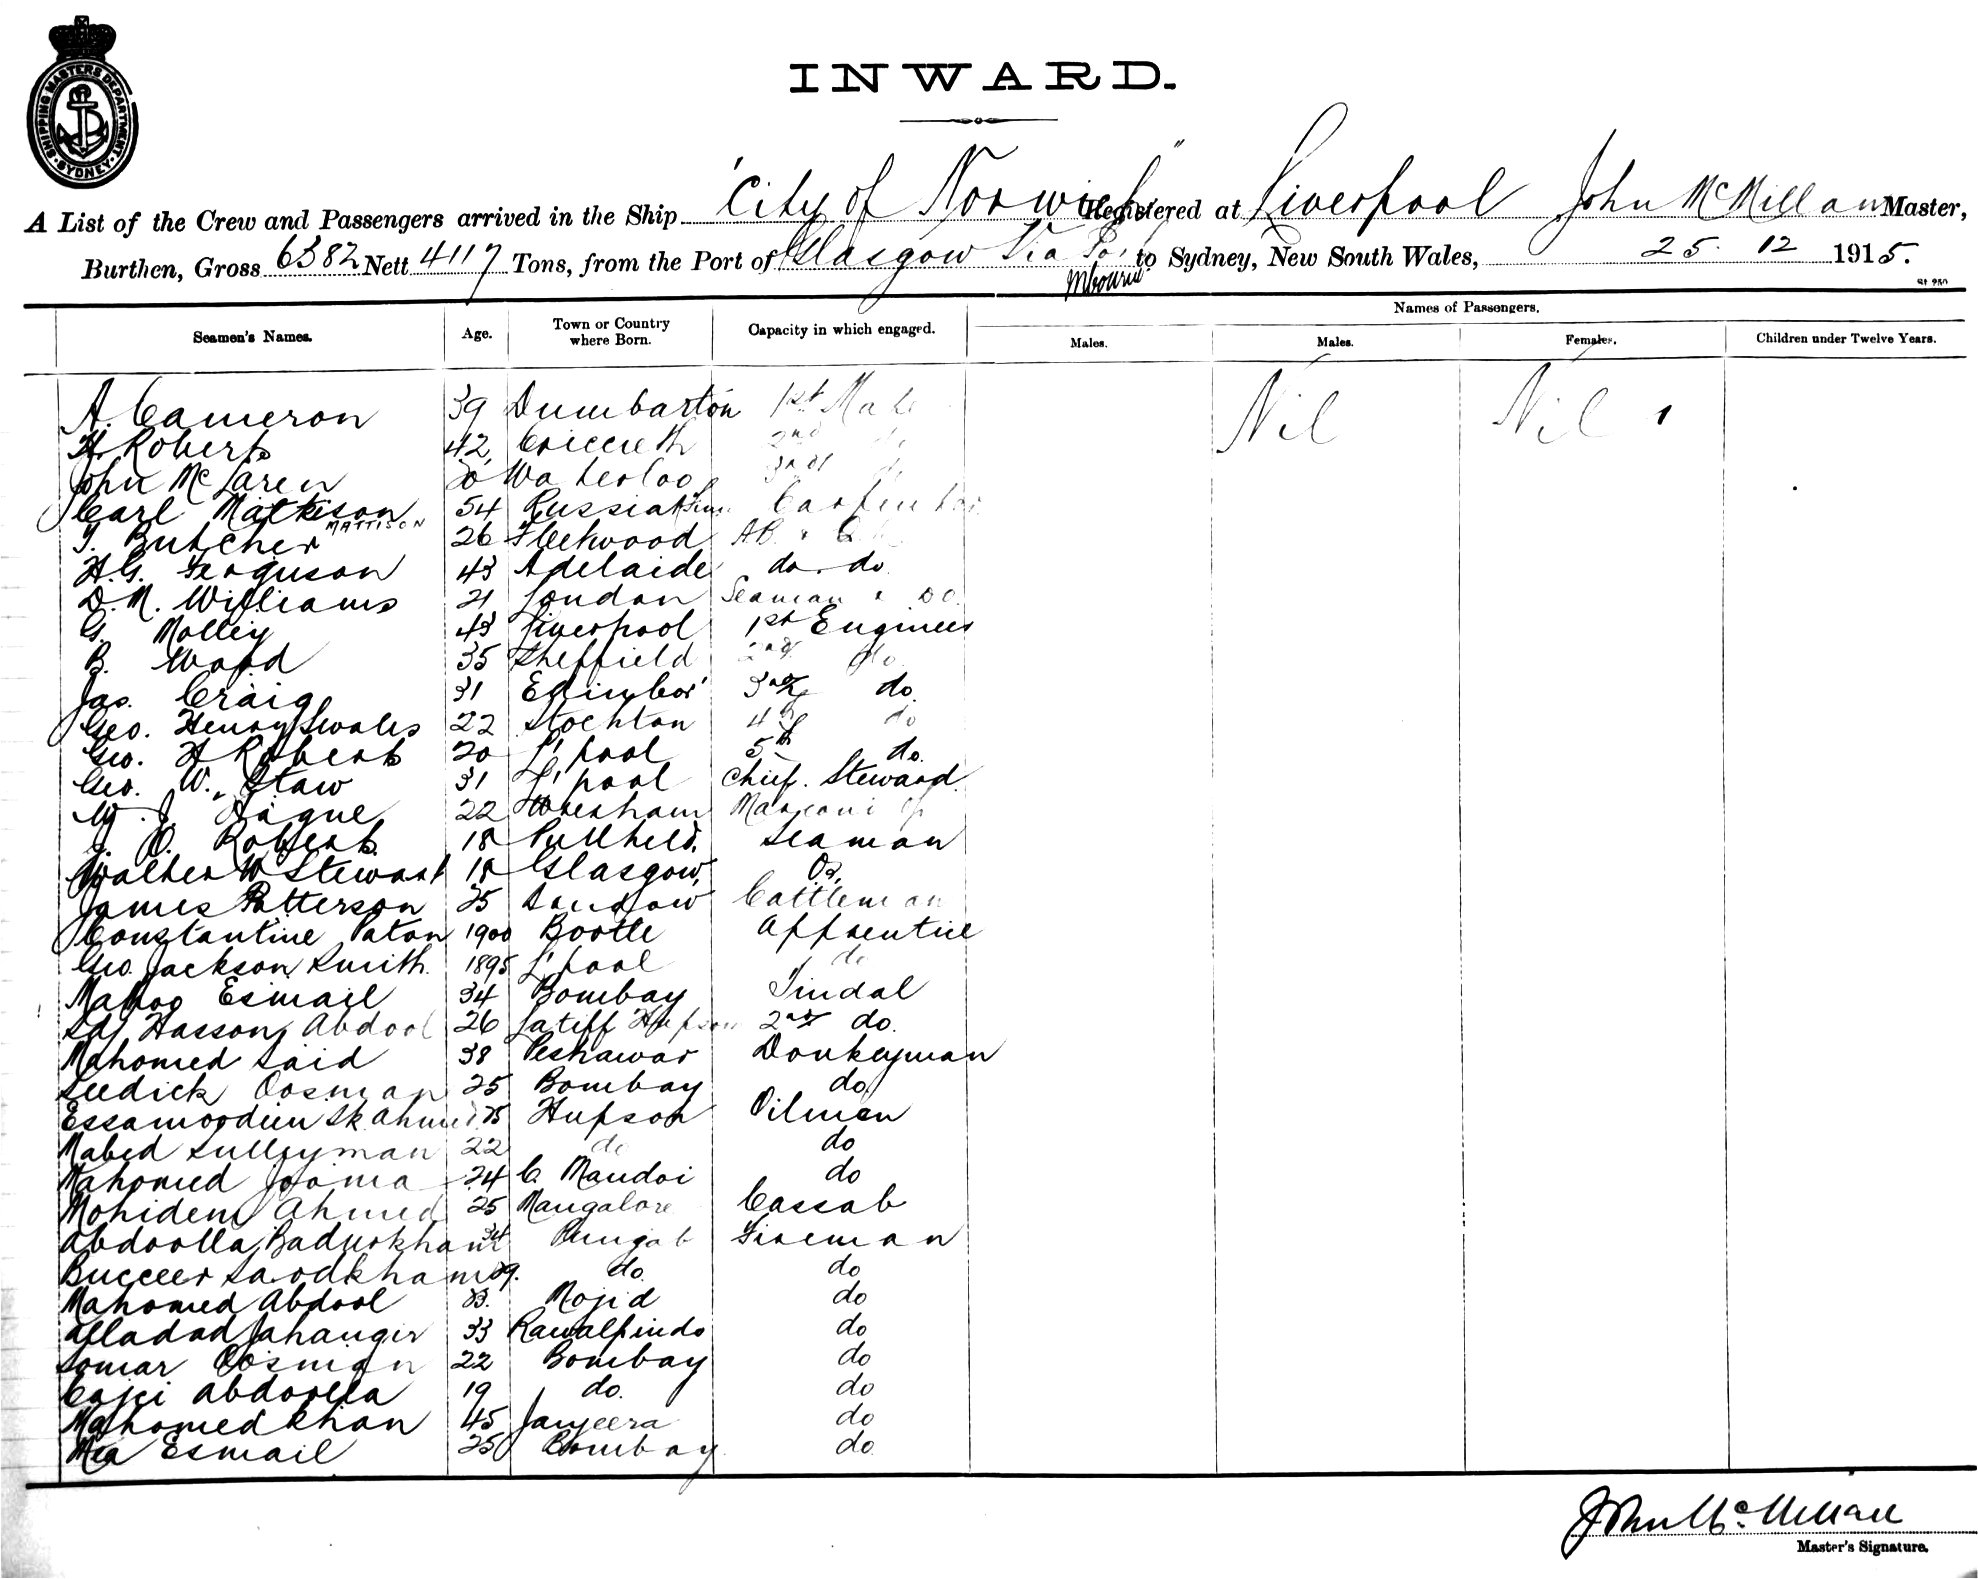 SHIPPING MASTERS DEPARTMENT · SYDNEY ·
INWARD.
A List of the Crew and Passengers arrived in the Ship "City of Norwich" Registered at Liverpool John McMillan Master,
Burthen, Gross 6382 Nett 4117 Tons, from the Port of Glasgow Via to Sydney, New South Wales, 25. 12 1915.
Mbourne
Names of Passengers.
Seamen's Names. Age. Town or Country where Born. Capacity in which engaged. Males. Males. Females. Children under Twelve Years.
A. Cameron 39 Dumbarton 1st Mate Nil Nil
H. Roberts 42 Criccieth 2nd do
John McLaren Waterloo 3rd do
Carl Mattison 54 Russian Finn Carpenter
MATTISON
T. Butcher 26 Fleetwood AB
H.G. Ferguson 43 Adelaide do do
D.M. Williams 21 London Seaman DO.
G. Molley 43 Liverpool 1st Engineer
B. Wood 35 Sheffield 2nd do
Jas. Craig 31 Edinboro' 3rd do.
Geo. Henry Swales 22 Stockton 4th do
Geo. H Roberts 20 L'pool 5th do.
Geo. W. Staw 31 L'pool Chief. Steward.
W. J. Hague 22 Wrexham Marconi Op
J. O. Roberts 18 Pwllheli. Seaman
Walter W Stewart 18 Glasgow, Do.
James Patterson 25 Cattleman
Constantine Paton 1900 Bootle Apprentice
Geo. Jackson Smith. 1895 L'pool do
Esmail 34 Bombay Tindal
Hasson Abdool 26 Latiff Hupson 2nd do.
Mahomed Said 38 Peshawar Donkeyman
Seedick Oosman 25 Bombay do
Essamoodeen Sk. Ahmed 25 Hupson Oilman
Mabed Sulleyman 22 do do
Mahomed Jooma 24 C. Mandoi do
Mohidem Ahmed 25 Mangalore Cassab
Abdoolla Badurkhan 34 Punjab Fireman
Bucceer Saodkham 29. do. do
Mahomed Abdool 23. Mojid do
Alladad Jahangir 33 Rawalpindo do
Somar Oosman 22 Bombay do
Cajci Abdoolla 19 do. do
Mahomed Khan 45 Janjeera do
Mia Esmail 25 Bombay do
John McMillan
Master's Signature.